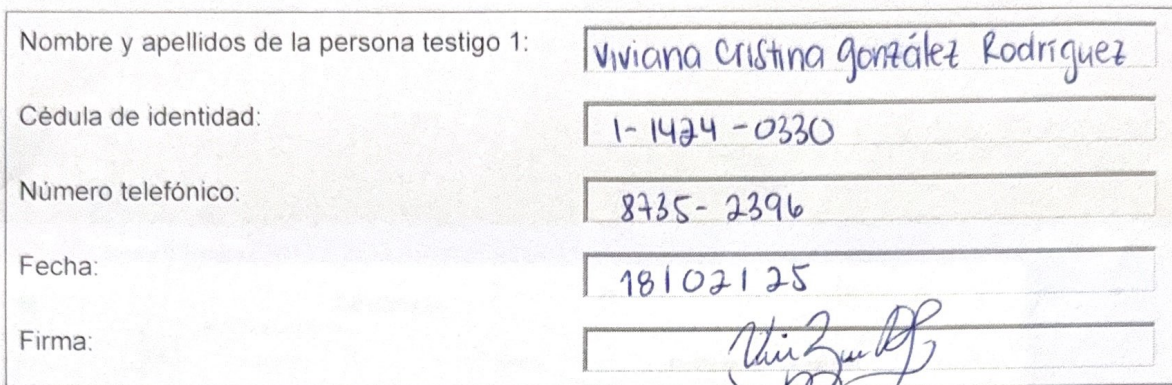 Nombre y apellidos de la persona testigo 1: Viviana Cristina González Rodríguez
Cédula de identidad: 1-1424-0330
Número telefónico: 8735-2396
Fecha: 18/02/25
Firma: